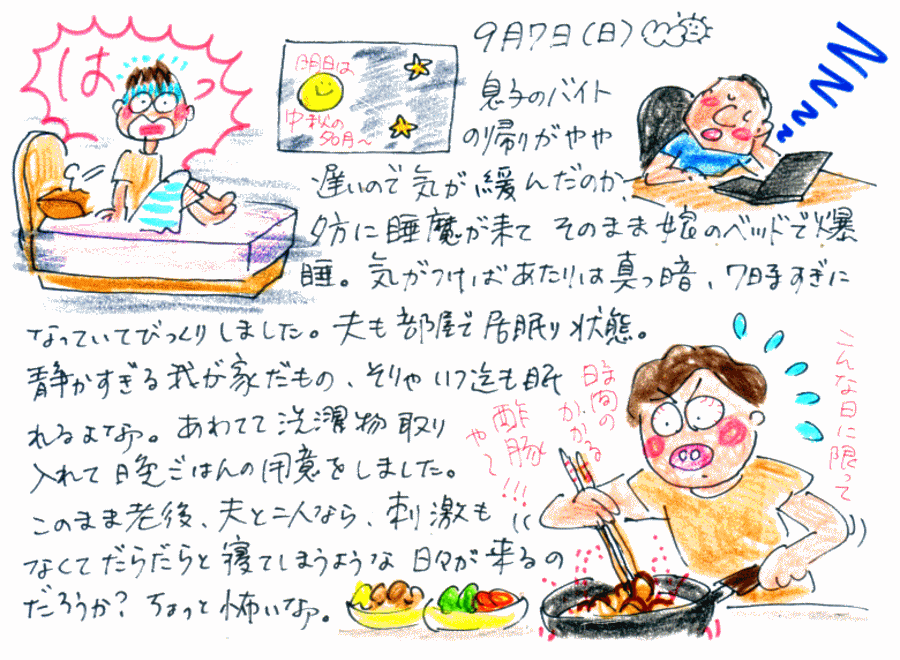 9月7日(日)
はっ
明日は
中秋の
名月～
NNNN~~
息子のバイト
の帰りがやや
遅いので気が緩んだのか、
夕方に睡魔が来てそのまま嫁のベッドで爆
睡。気がつけばあたりは真っ暗、7時すぎに
なっていてびっくりしました。夫も部屋で居眠り状態。
静かすぎる我が家だもの、そりゃいつ迄も眠
れるよなァ。あわてて洗濯物取り
入れて晩ごはんの用意をしました。
このまま老後、夫と二人なら、刺激も
なくてだらだらと寝てしまうような日々が来るの
だろうか？ちょっと怖いなァ。
こんな日に限って
時間の
かかる
酢豚
や～!!!